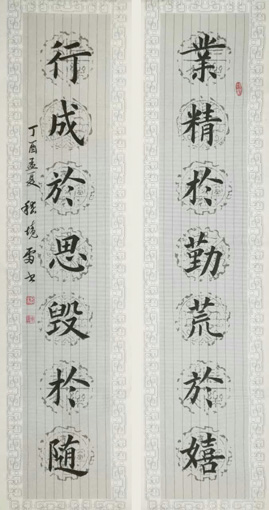 業精於勤荒於嬉
行成於思毀於随
丁酉孟夏